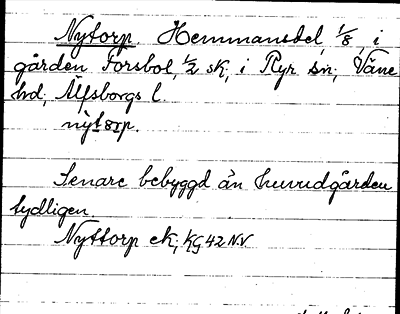 Nytorp Hemmansdel, 1/8, i
gården Forsbol, 1/2 sk, i Ryr sn, Väne
hd, Älfsborgs l.
nỳtorp.
Senare bebyggd än huvudgården
tydligen.
Nyttorp ek, kg 42 NV